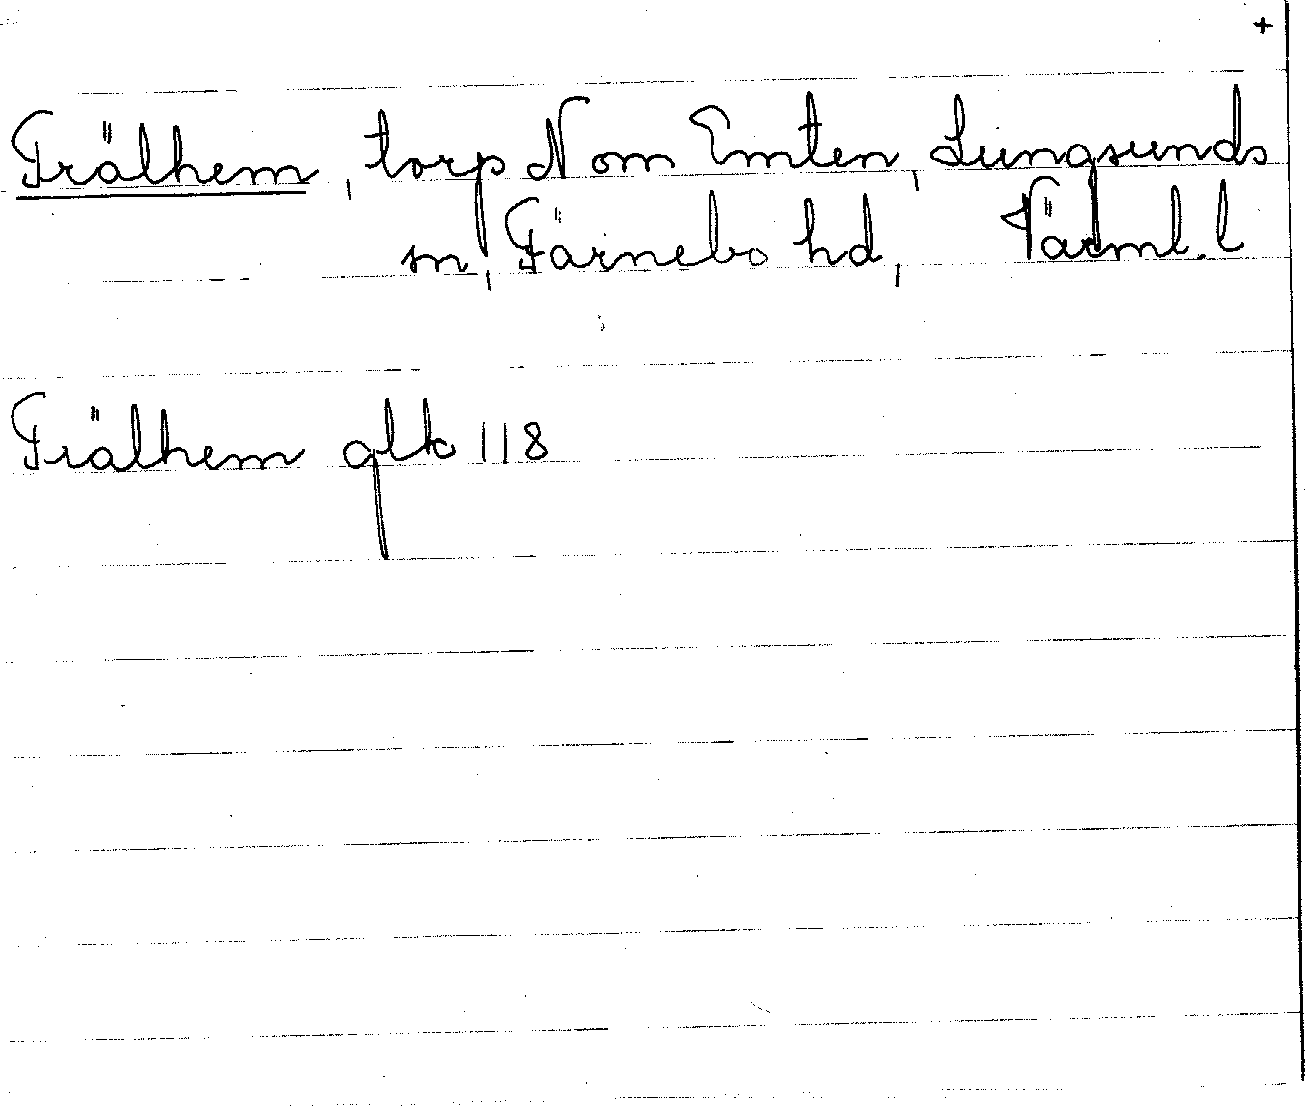 +
Trälhem, torp N om Emten, Lungsunds
sn, Färnebo hd, Värml. l
Trälhem glk 118